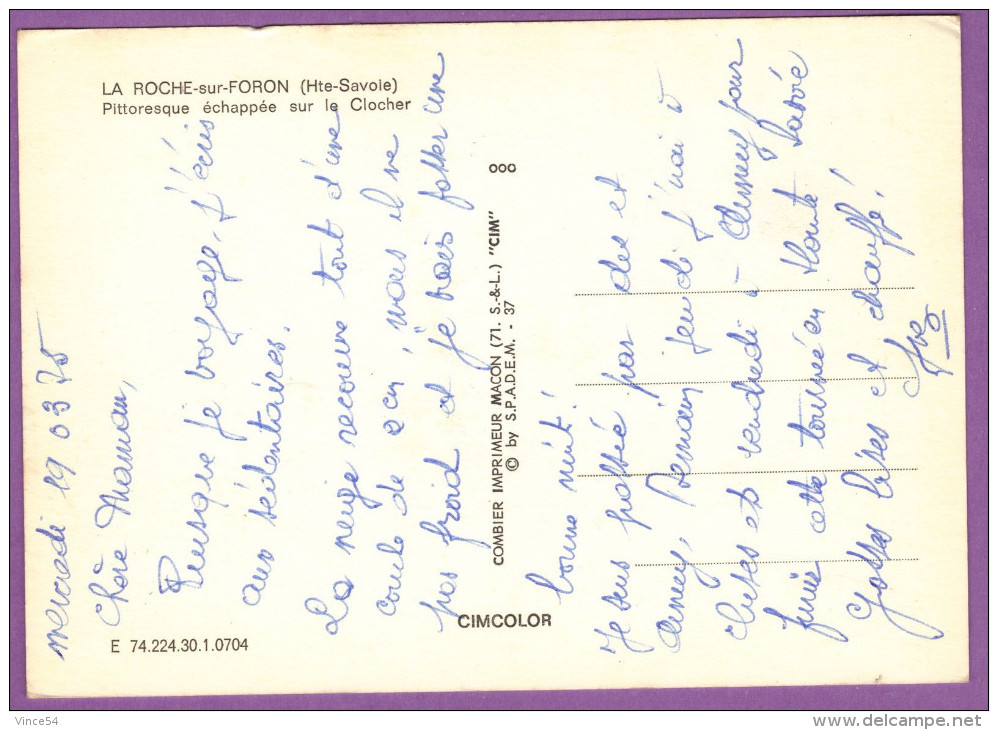 LA ROCHE-sur-FORON (Hte-Savoie)
Pittoresque échappée sur le Clocher
mercredi 19 03 75
Chère Maman,
Puisque je voyage, j'écris
aux sédentaires.
La neige recouvre tout d'une
coule de et il ne
pas froid et je vais passer une
bonne nuit!
Je suis passée par des et
Annecy, Demain jeudi j'irai à
Cluses et vendredi à Annecy pour
finir cette tournée en Haute Savoie
Grosses bises et chauffé!
COMBIER IMPRIMEUR MACON (71. S.-&-L.) "CIM"
© by S.P.A.D.E.M. - 37
CIMCOLOR
E 74.224.30.1.0704
Vince54
delcampe.net